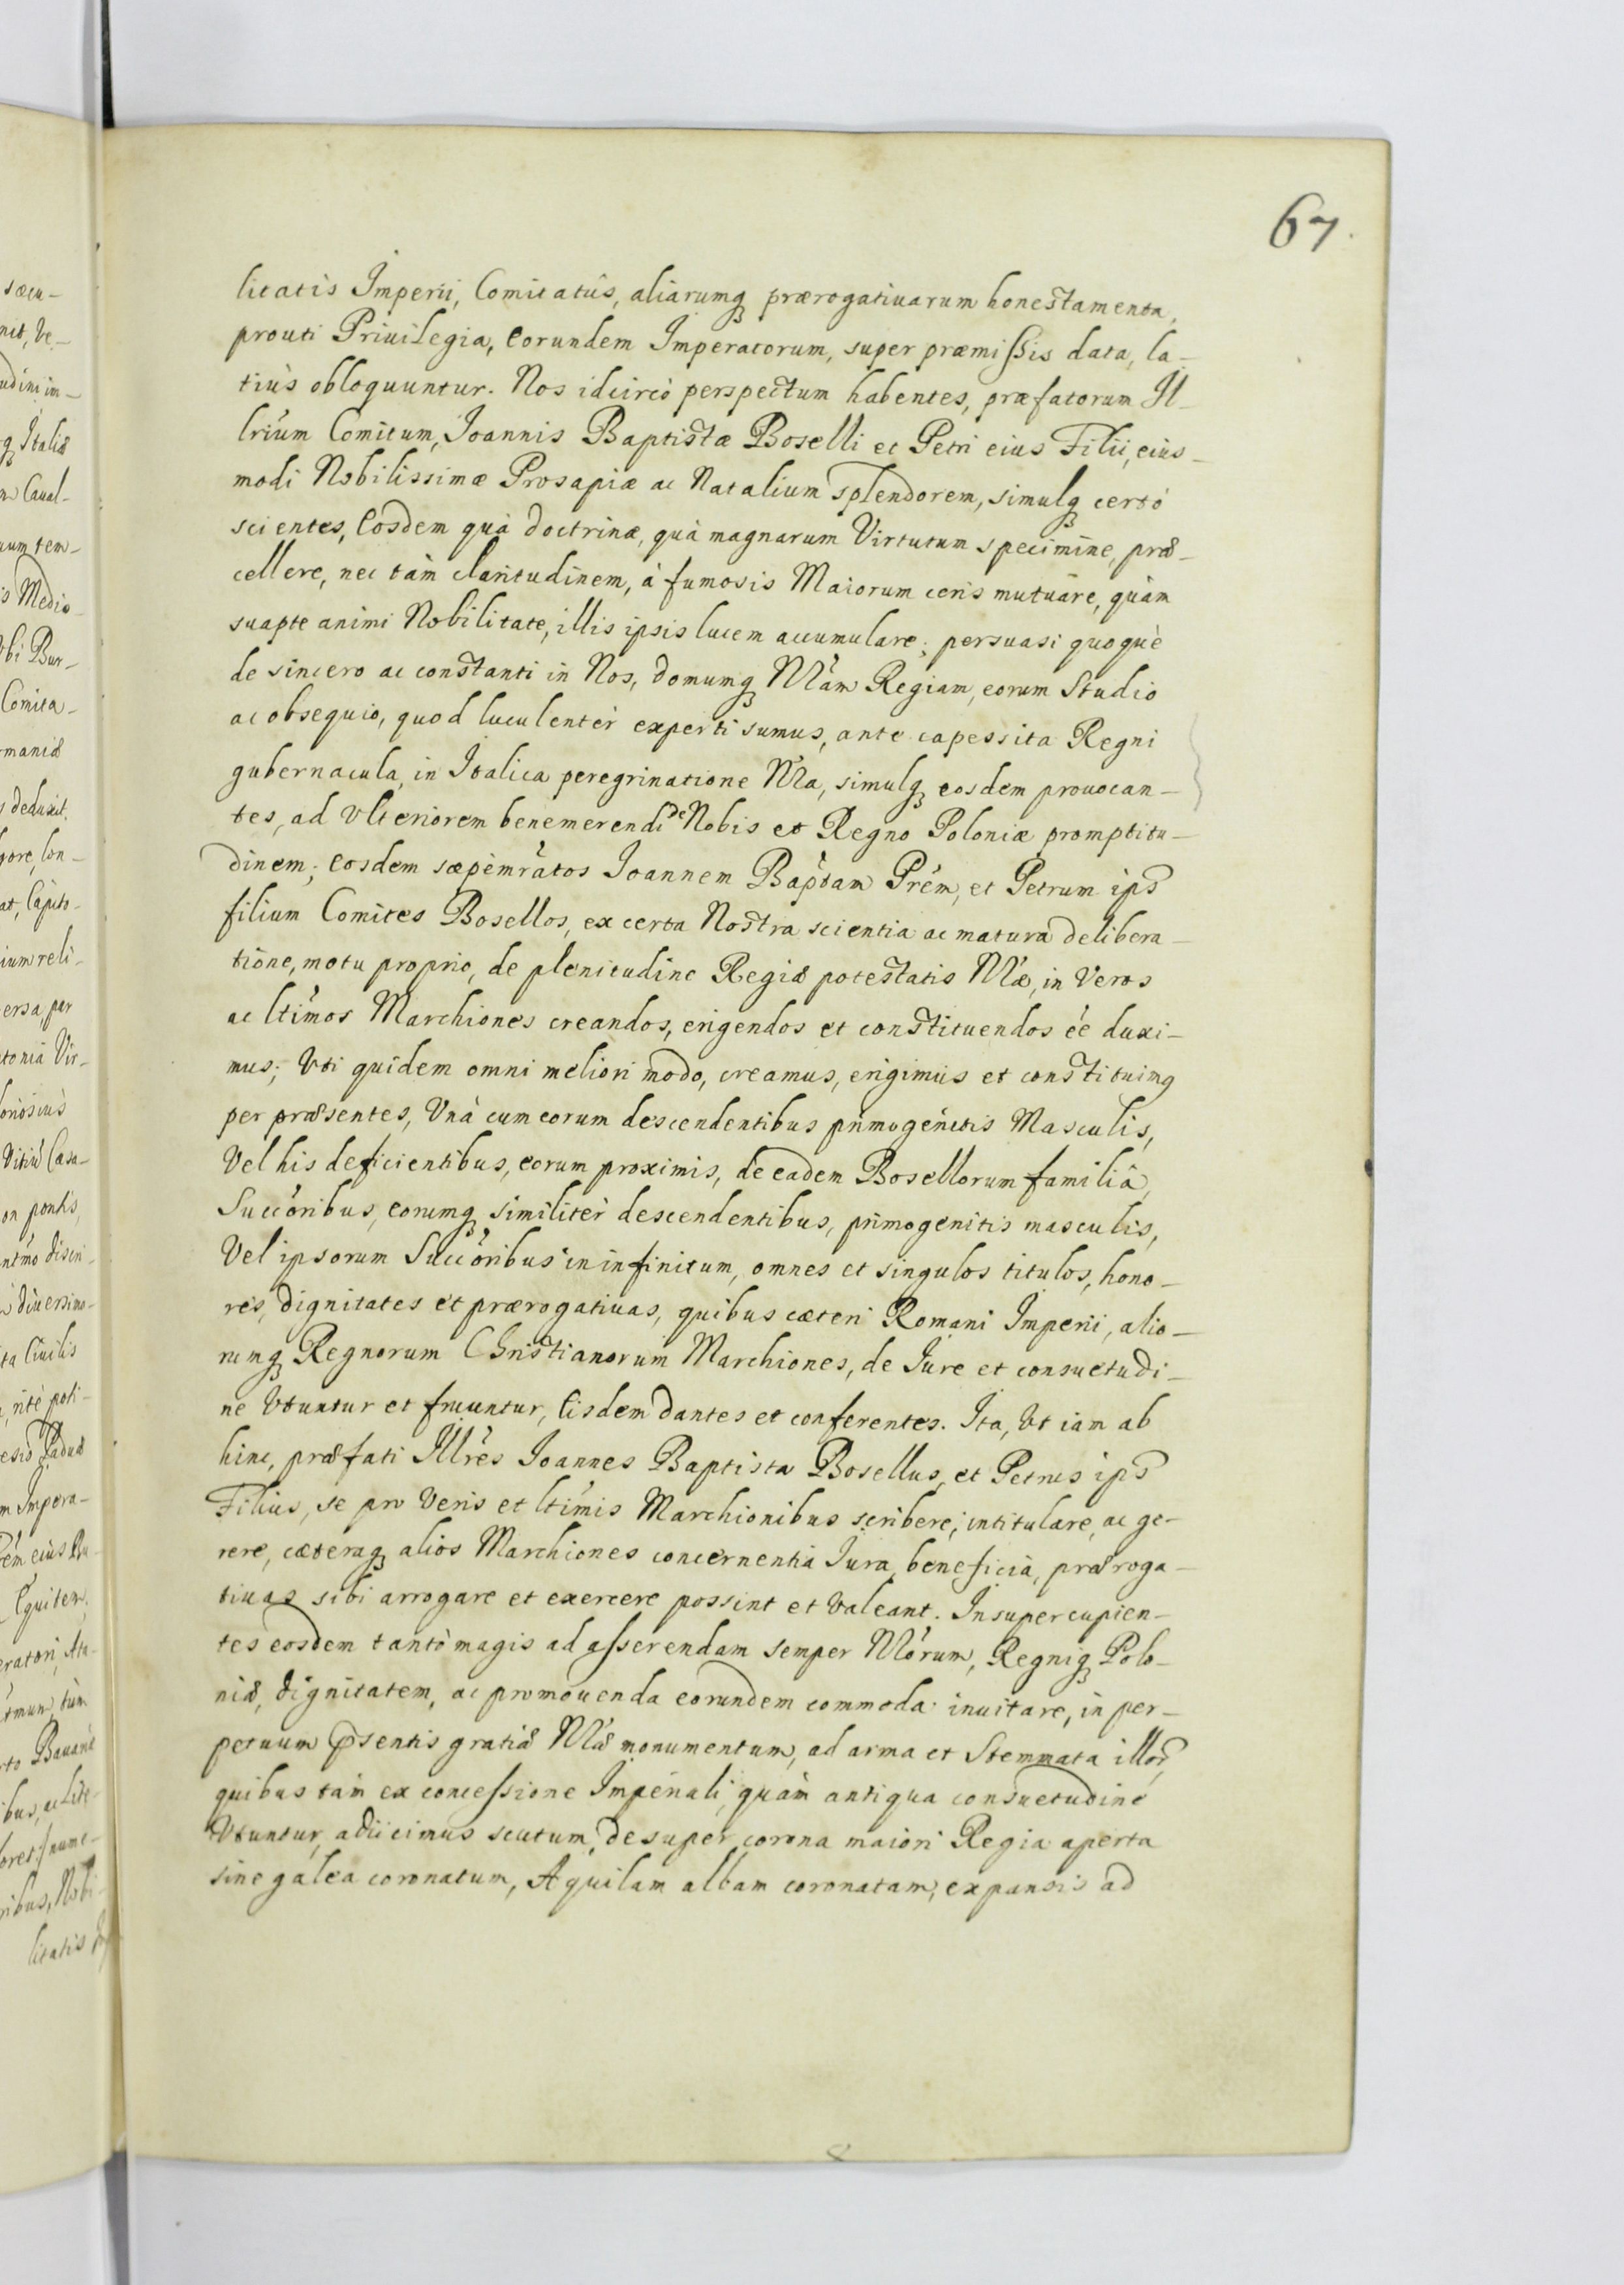 67.
litatis Imperii, Comitatûs, aliarumq́ prærogatiuarum honestamenta,
prouti Priuilegia, Eorundem Imperatorum, super præmissis data, la-
tiùs obloquuntur. Nos idcircò perspectum habentes, præfatorum Il-
lrium Comitum, Joannis Baptistæ Boselli et Petri eius Filii, eius-
modi Nobilissimæ Prosapiæ ac Natalium splendorem, simulq́ certò
scientes, Eosdem quà doctrinæ, quà magnarum Virtutum specimine, præ-
cellere, nec tàm claritudinem, à fumosis Maiorum ceris mutuare, quàm
suapte animi Nobilitate, illis ipsis lucem accumulare; persuasi quoquè
de sincero ac constanti in Nos, domumq́ Nr̃am Regiam, eorum Studio
ac obsequio, quod luculentèr experti sumus, ante capessita Regni
gubernacula, in Italica peregrinatione Nr̃a, simulq́ eosdem prouocan-
tes, ad Vlteriorem benemerendi de Nobis et Regno Poloniæ promptitu-
dinem; Eosdem sæpèmr̃atos Joannem Bap̃tam Prẽm, et Petrum ips
filium Comites Bosellos, ex certa Nostra scientia ac matura delibera-
tione, motu proprio, de plenitudine Regiæ potestatis Nr̃æ, in Veros
ac ltimos Marchiones creandos, erigendos et constituendos ẽe duxi-
mus; Vti quidem omni meliori modo, creamus, erigimus et constituimq
per præsentes, Vnà cum eorum descendentibus primogenitis Masculis,
Vel his deficientibus, eorum proximis, de eadem Bosellorum familiâ,
Succõribus, eorumq́ similitèr descendentibus, primogenitis masculis,
Vel ipsorum Succõribus in infinitum, omnes et singulos titulos, hono-
res, dignitates et prærogatiuas, quibus cæteri Romani Imperii, alio-
rumq́ Regnorum Christianorum Marchiones, de Jure et consuetudi-
ne Vtuntur et fruuntur, Eisdem dantes et conferentes. Ita, Vt iam ab
hinc, præfati Illrẽs Joannes Baptista Bosellus, et Petrus ips
Filius, se pro Veris et ltimis Marchionibus scribere, intitulare, ac ge-
rere, cæteraq́ alios Marchiones concernentia Jura, beneficia, præroga-
tiuas sibi arrogare et exercere possint et Valeant. Insuper cupien-
tes eosdem tantò magis ad asserendam semper Nr̃orum, Regniq́ Polo-
niæ, dignitatem, ac promouenda eorundem commoda inuitare, in per-
petuum p̃sentis gratiæ Nr̃æ monumentum, ad arma et Stemmata illor,
quibus tàm ex concessione Imperiali, quàm antiqua consuetudine
Vtuntur, adiicimus scutum, desuper corona maiori Regia aperta
sine galea coronatum, Aquilam albam coronatam, expansis ad